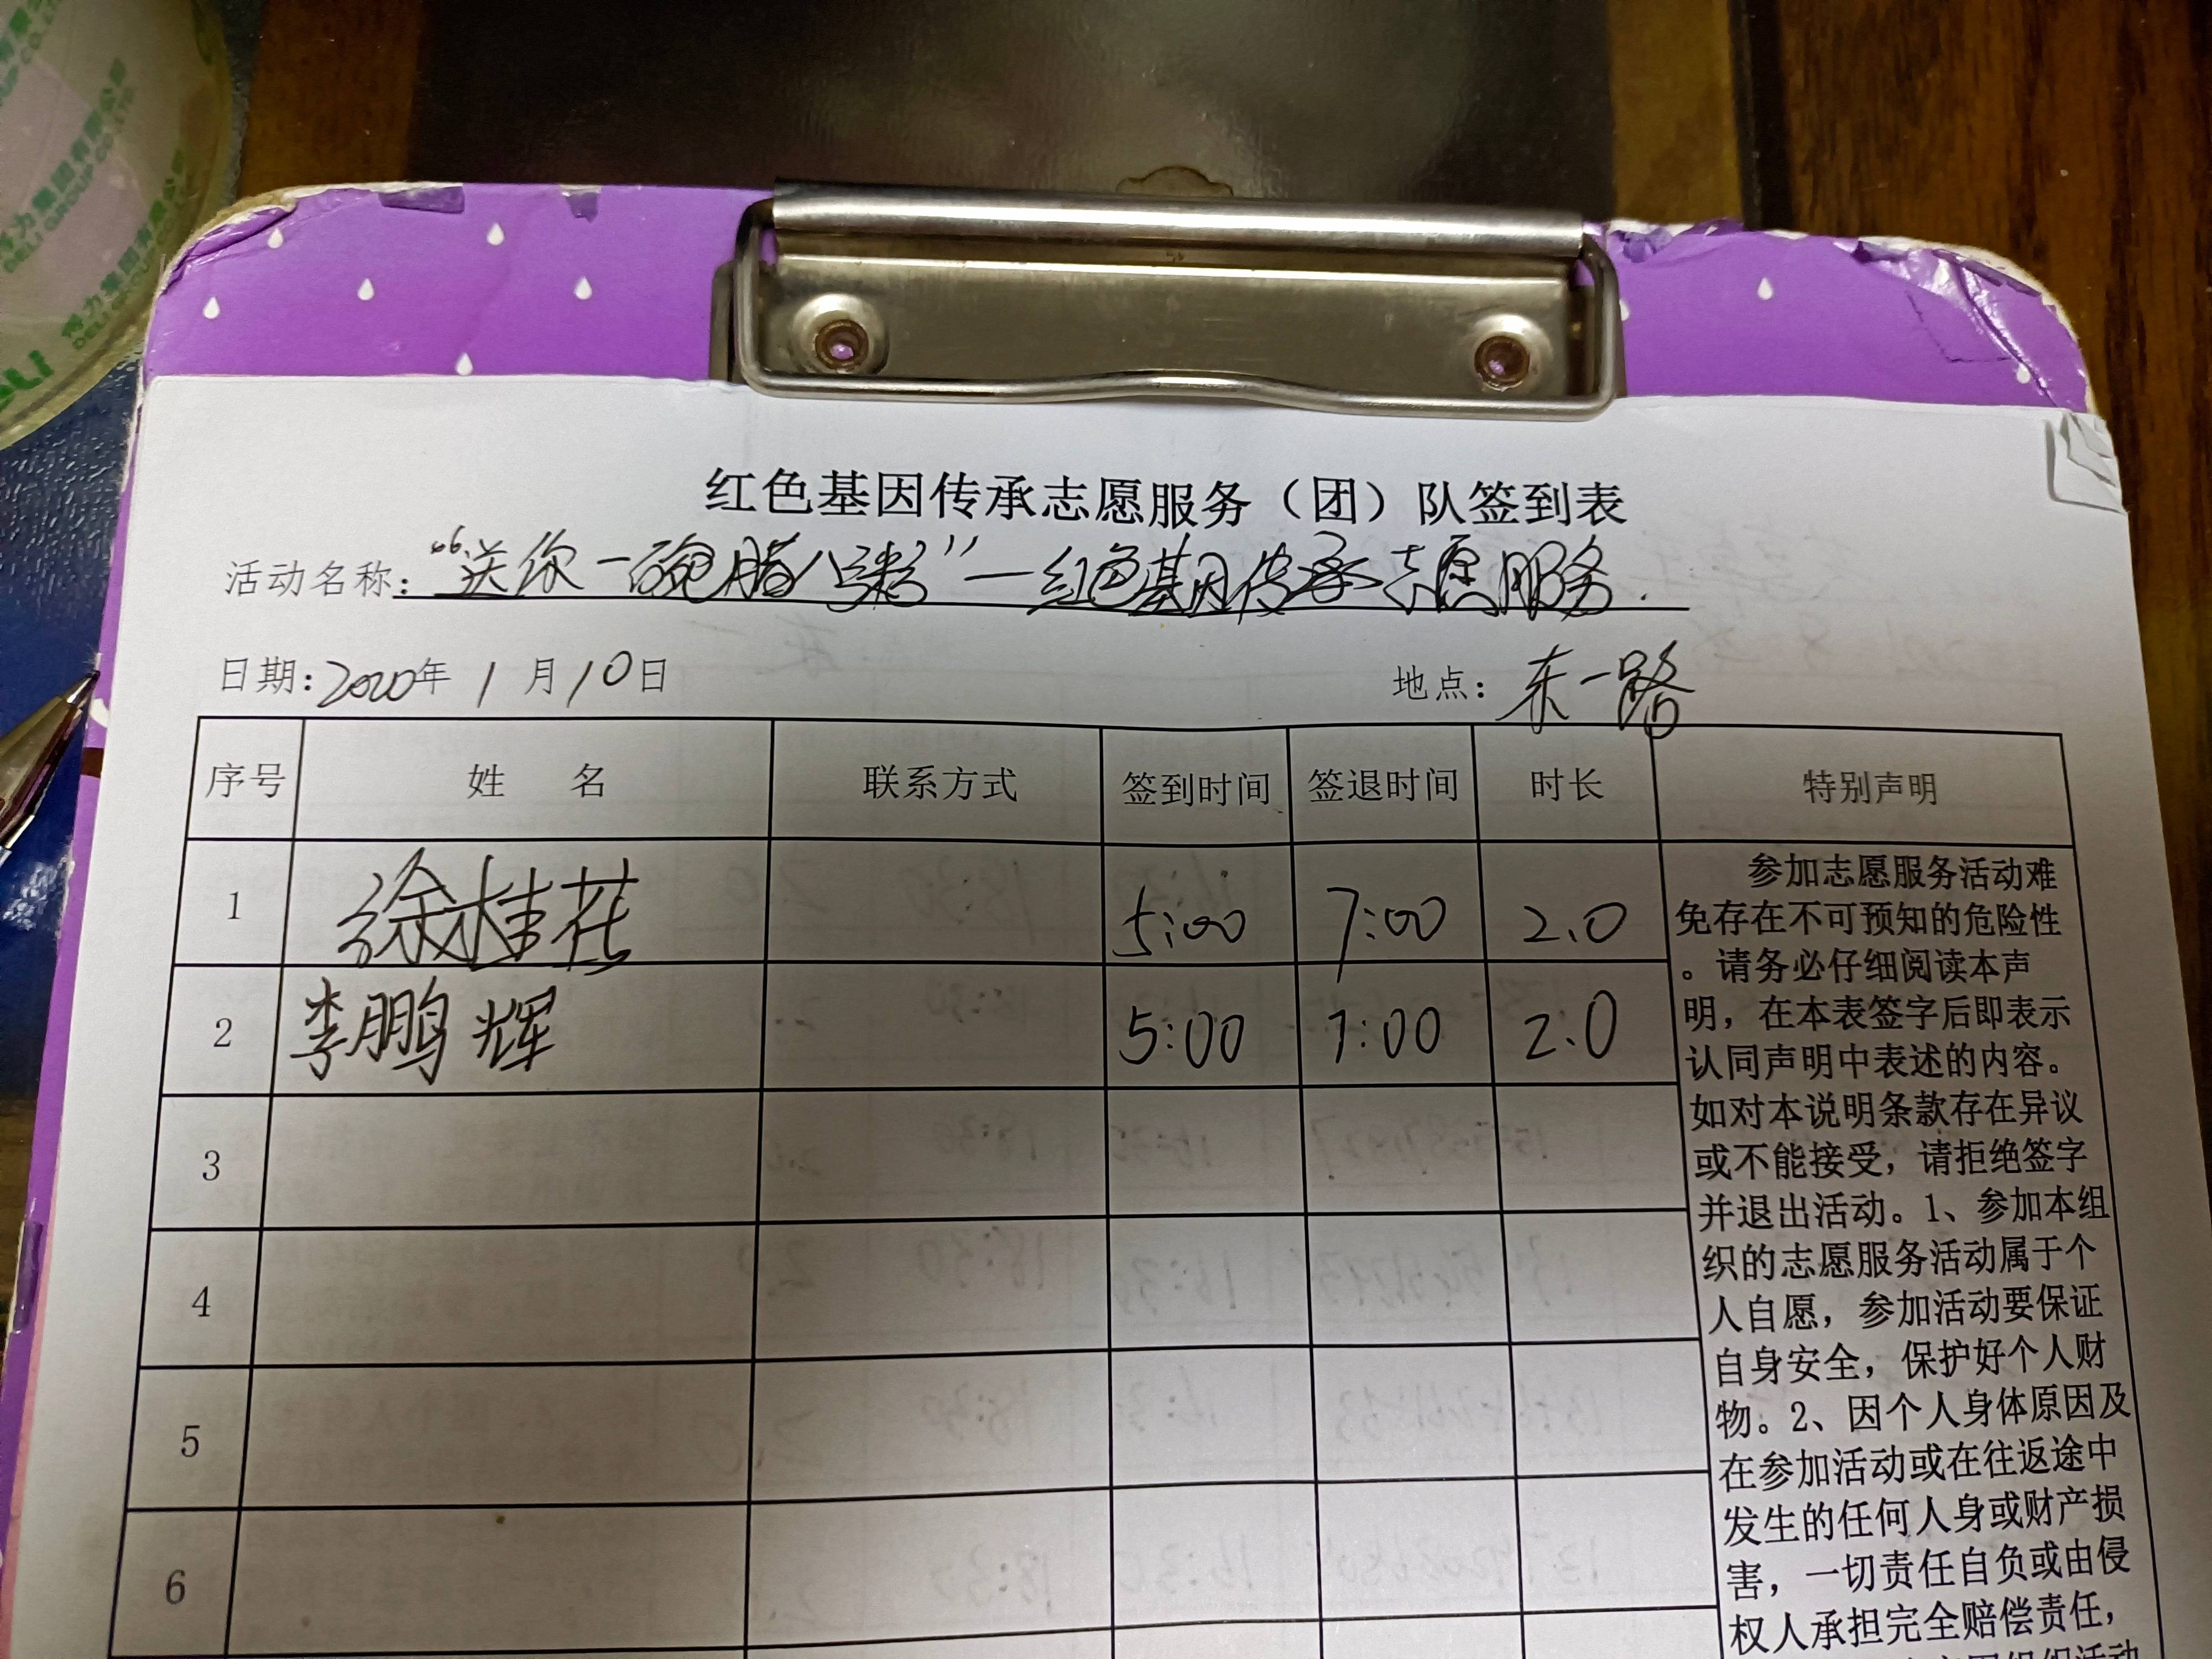 红色基因传承志愿服务（团）队签到表
活动名称：“送你一碗腊八粥”—红色基因传承志愿服务.
日期：2020年 1 月 10 日 地点：东一路
序号 姓 名 联系方式 签到时间 签退时间 时长 特别声明
1 徐桂花 5:00 7:00 2.0
2 李鹏辉 5:00 7:00 2.0
3
4
5
6
参加志愿服务活动难
免存在不可预知的危险性
。请务必仔细阅读本声
明，在本表签字后即表示
认同声明中表述的内容。
如对本说明条款存在异议
或不能接受，请拒绝签字
并退出活动。1、参加本组
织的志愿服务活动属于个
人自愿，参加活动要保证
自身安全，保护好个人财
物。2、因个人身体原因及
在参加活动或在往返途中
发生的任何人身或财产损
害，一切责任自负或由侵
权人承担完全赔偿责任，